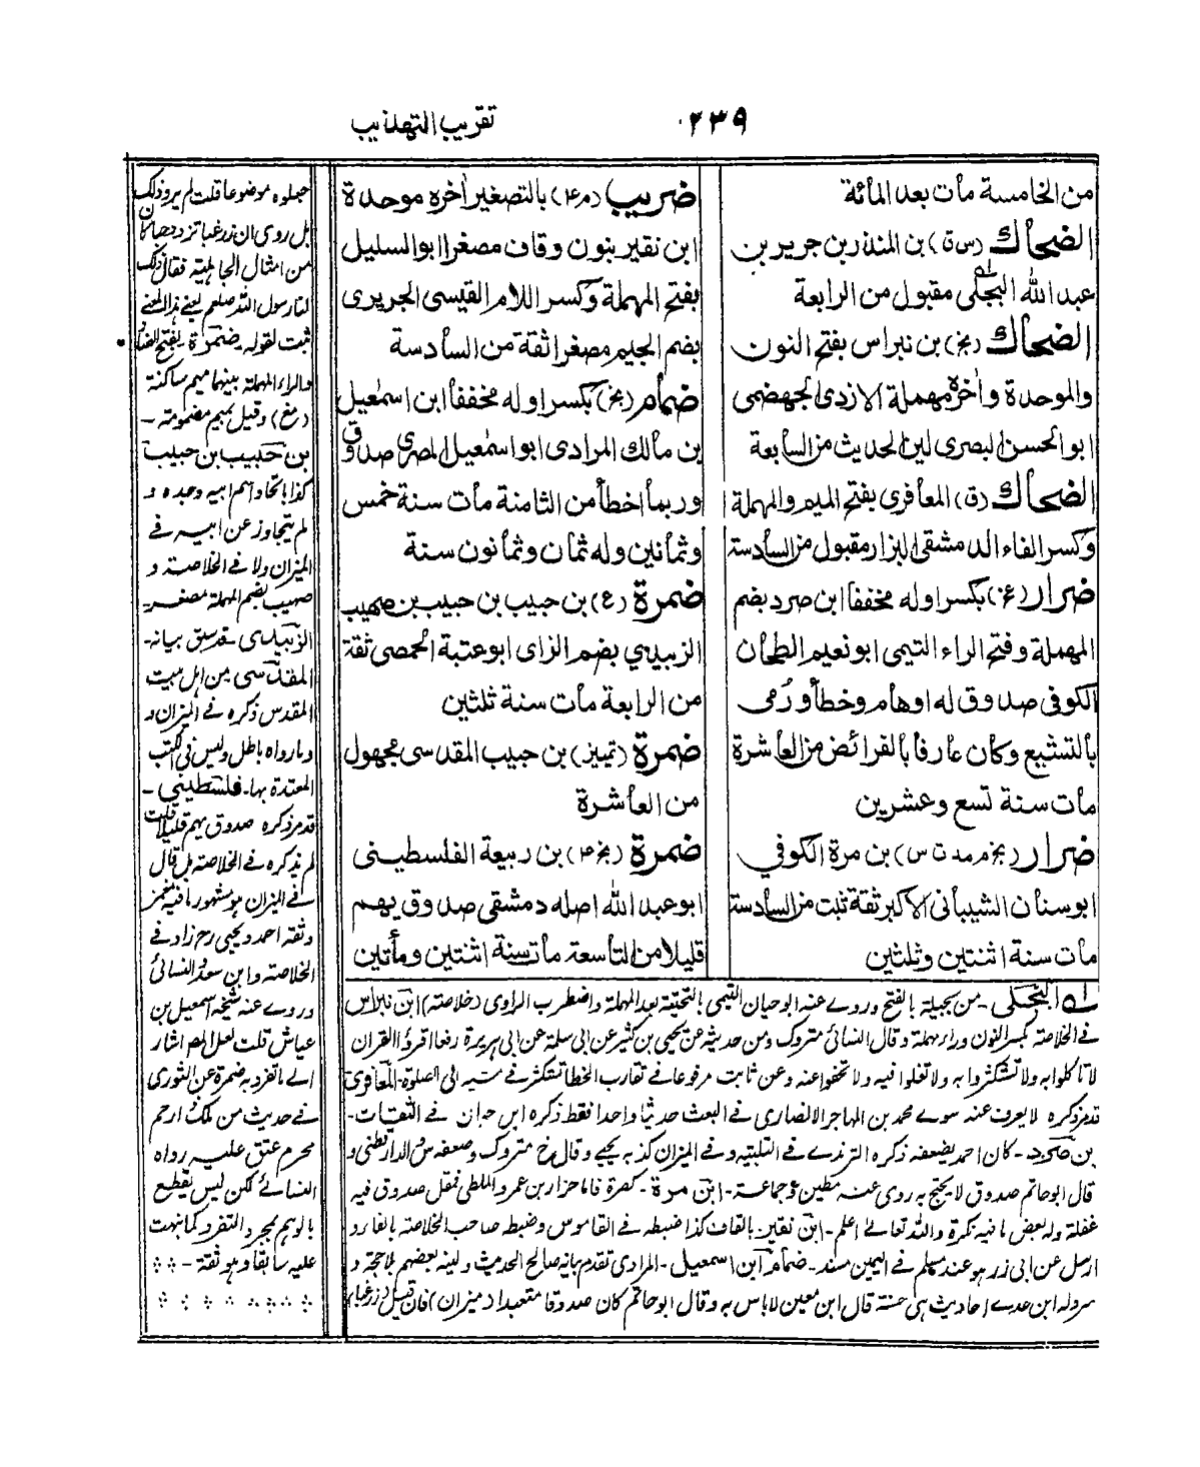 ٢٣٩
تقريب التهذيب
من الخامسة مات بعد المائة
الضحاك (س ق) بن المنذر بن جرير بن
عبد الله البجلى مقبول من الرابعة
الضحاك (بخ) بن نبراس بفتح النون
والموحدة وأخره مهملة الازدى الجهضمى
ابو الحسن البصرى لين الحديث من السابعة
الضحاك (ق) المعافرى بفتح الميم والمهملة
وكسر الفاء الدمشقى البزار مقبول من السادسة
ضرار (عخ) بكسر اوله مخففا ابن صرد بضم
المهملة وفتح الراء التيمى ابو نعيم الطحان
الكوفى صدوق له اوهام وخطأ ورُمى
بالتشيع وكان عارفا بالفرائض من العاشرة
مات سنة تسع وعشرين
ضرار (بخ م مد ت س) بن مرة الكوفي
ابو سنان الشيبانى الاكبر ثقة ثبت من السادسة
مات سنة اثنتين وثلثين
ضريب (م ٤) بالتصغير أخره موحدة
ابن نقير بنون وقاف مصغرا ابو السليل
بفتح المهملة وكسر اللام القيسى الجريرى
بضم الجيم مصغرا ثقة من السادسة
ضمام (بخ) بكسر اوله مخففا ابن اسمعيل
بن مالك المرادى ابو اسمعيل المصرى صدوق
وربما اخطأ من الثامنة مات سنة خمس
وثمانين وله ثمان وثمانون سنة
ضمرة (ع) بن حبيب بن حبيب بن صهيب
الزبيدي بضم الزاى ابو عتبة الحمصى ثقة
من الرابعة مات سنة ثلثين
ضمرة (تميز) بن حبيب المقدسى مجهول
من العاشرة
ضمرة (بخ ٤) بن ربيعة الفلسطينى
ابو عبد الله اصله دمشقى صدوق يهم
قليلا من التاسعة مات سنة اثنتين ومأتين
له البجلى - من بجيلة بالفتح وروے عنه ابو حيان التيمى بالتحتية بعد المهملة واضطرب الراوى (خلاصة) ابن نبراس
فے الخلاصة بكسر النون وراء مهملة وقال النسائى متروك ومن حديثه عن يحيى بن كثير عن ابى سلمة عن ابى هريرة رفعا اقرؤا القران
لا تاكلوا به ولا تستكثروا به ولا تغلوا فيه ولا تجفوا عنه وعن ثابت مرفوعا فے تقارب الخطا تكثر فے مشيه الى الصلوة - المعافرى
قد مر ذكره لا يعرف عنه سوے محمد بن المهاجر الانصارى فے البعث حديثا واحدا فقط ذكره ابن حبان فے الثقات -
بن صرد - كان احمد يضعفه ذكره الترمذے فے التلبية وفے الميزان كذبه يحيے وقال خ متروك وضعفه س والدارقطنى و
قال ابو حاتم صدوق لا يحتج به روى عنه مطين وجماعة - ابن مرة - كمرة فاما ضرار بن عمرو الملطى فمقل صدوق فيه
غفلة وله بعض ما فيه نكرة والله تعالى اعلم - ابن نقير بالقاف كذا ضبطه فے القاموس وضبطه صاحب الخلاصة بالفاء رد
ارسل عن ابى ذر هو عند مسلم فے اليمين مسند - ضمام ابن اسمعيل - المرادى تقدم بانه صالح الحديث ولينه بعضهم بلا حجة و
سرد له ابن عدے احاديث هى حسنة قال ابن معين لا باس به وقال ابو حاتم كان صدوقا متعبدا (ميزان) فان قيل زر غبا
جعلوه موضوعا قلت لم يرو ذلك
بل روى ان زر غبا تزدد حبا كان
من امثال الجاهلية فقال ذلك
لنا رسول الله صلعم يعنے هذا المعنے
ثبت لقوله - ضمرة بفتح الضاد
والراء المهملة بينهما ميم ساكنة
(مغ) وقيل بميم مضمومة -
بن حبيب بن حبيب
كذا باتحاد اسم ابيه وجده و
لم يتجاوز عن ابيه فے
الميزان ولا فے الخلاصة و
صهيب بضم المهملة مصغر -
الزبيدى - قد سبق بيانه -
المقدسى من اهل بيت
المقدس ذكره فے الميزان و
وما رواه باطل وليس فى الكتب
المعتمدة بها - فلسطينى -
قد مر ذكره صدوق يهم قليلا قلت
لم يذكره فے الخلاصة بل قال
فے الميزان مشهور ما فيه مغمز
وثقه احمد ويحيى زاد فے
الخلاصة وابن سعد والنسائى
وروے عنه شيخه اسمعيل بن
عياش قلت لعل الهم اشار
الے ما تفرد به ضمرة عن الثورى
فے حديث من ملك ذا رحم
محرم عتق عليه رواه
النسائے لكن ليس يقطع
بالوهم بمجرد التفرد كما نبهت
عليه سابقا وهو ثقة -